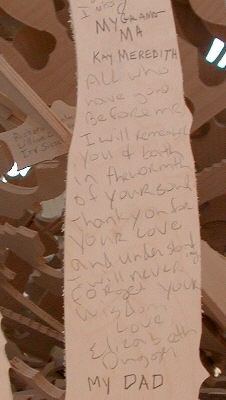 I
MY GRAND
MA
KAY MEREDITH
All who
have gone
Before me
I will remember
You & both
in the warmth
of your soul
Thank you for
your Love
and understand
I will never
forget your
wisdom
Love
Elizabeth
MY DAD